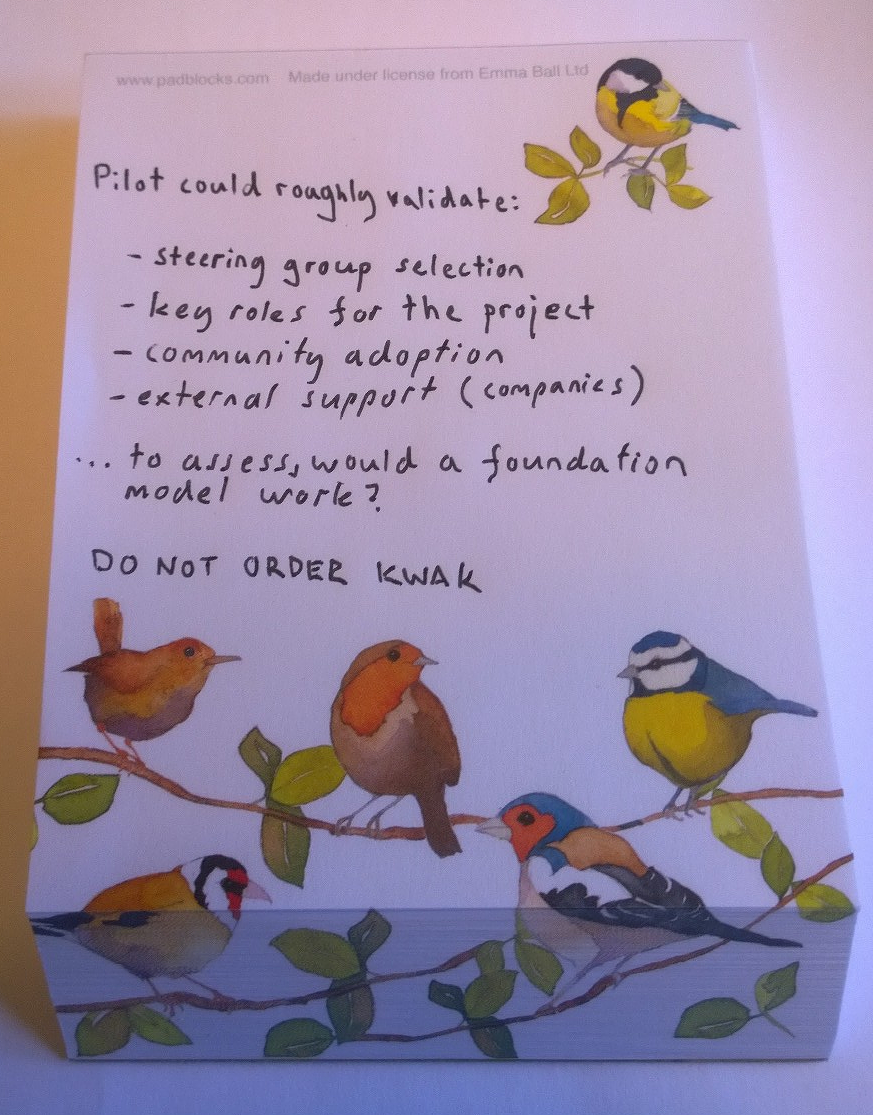 www.padblocks.com Made under license from Emma Ball Ltd
Pilot could roughly validate:
- steering group selection
- key roles for the project
- community adoption
- external support (companies)
... to assess, would a foundation
model work?
DO NOT ORDER KWAK